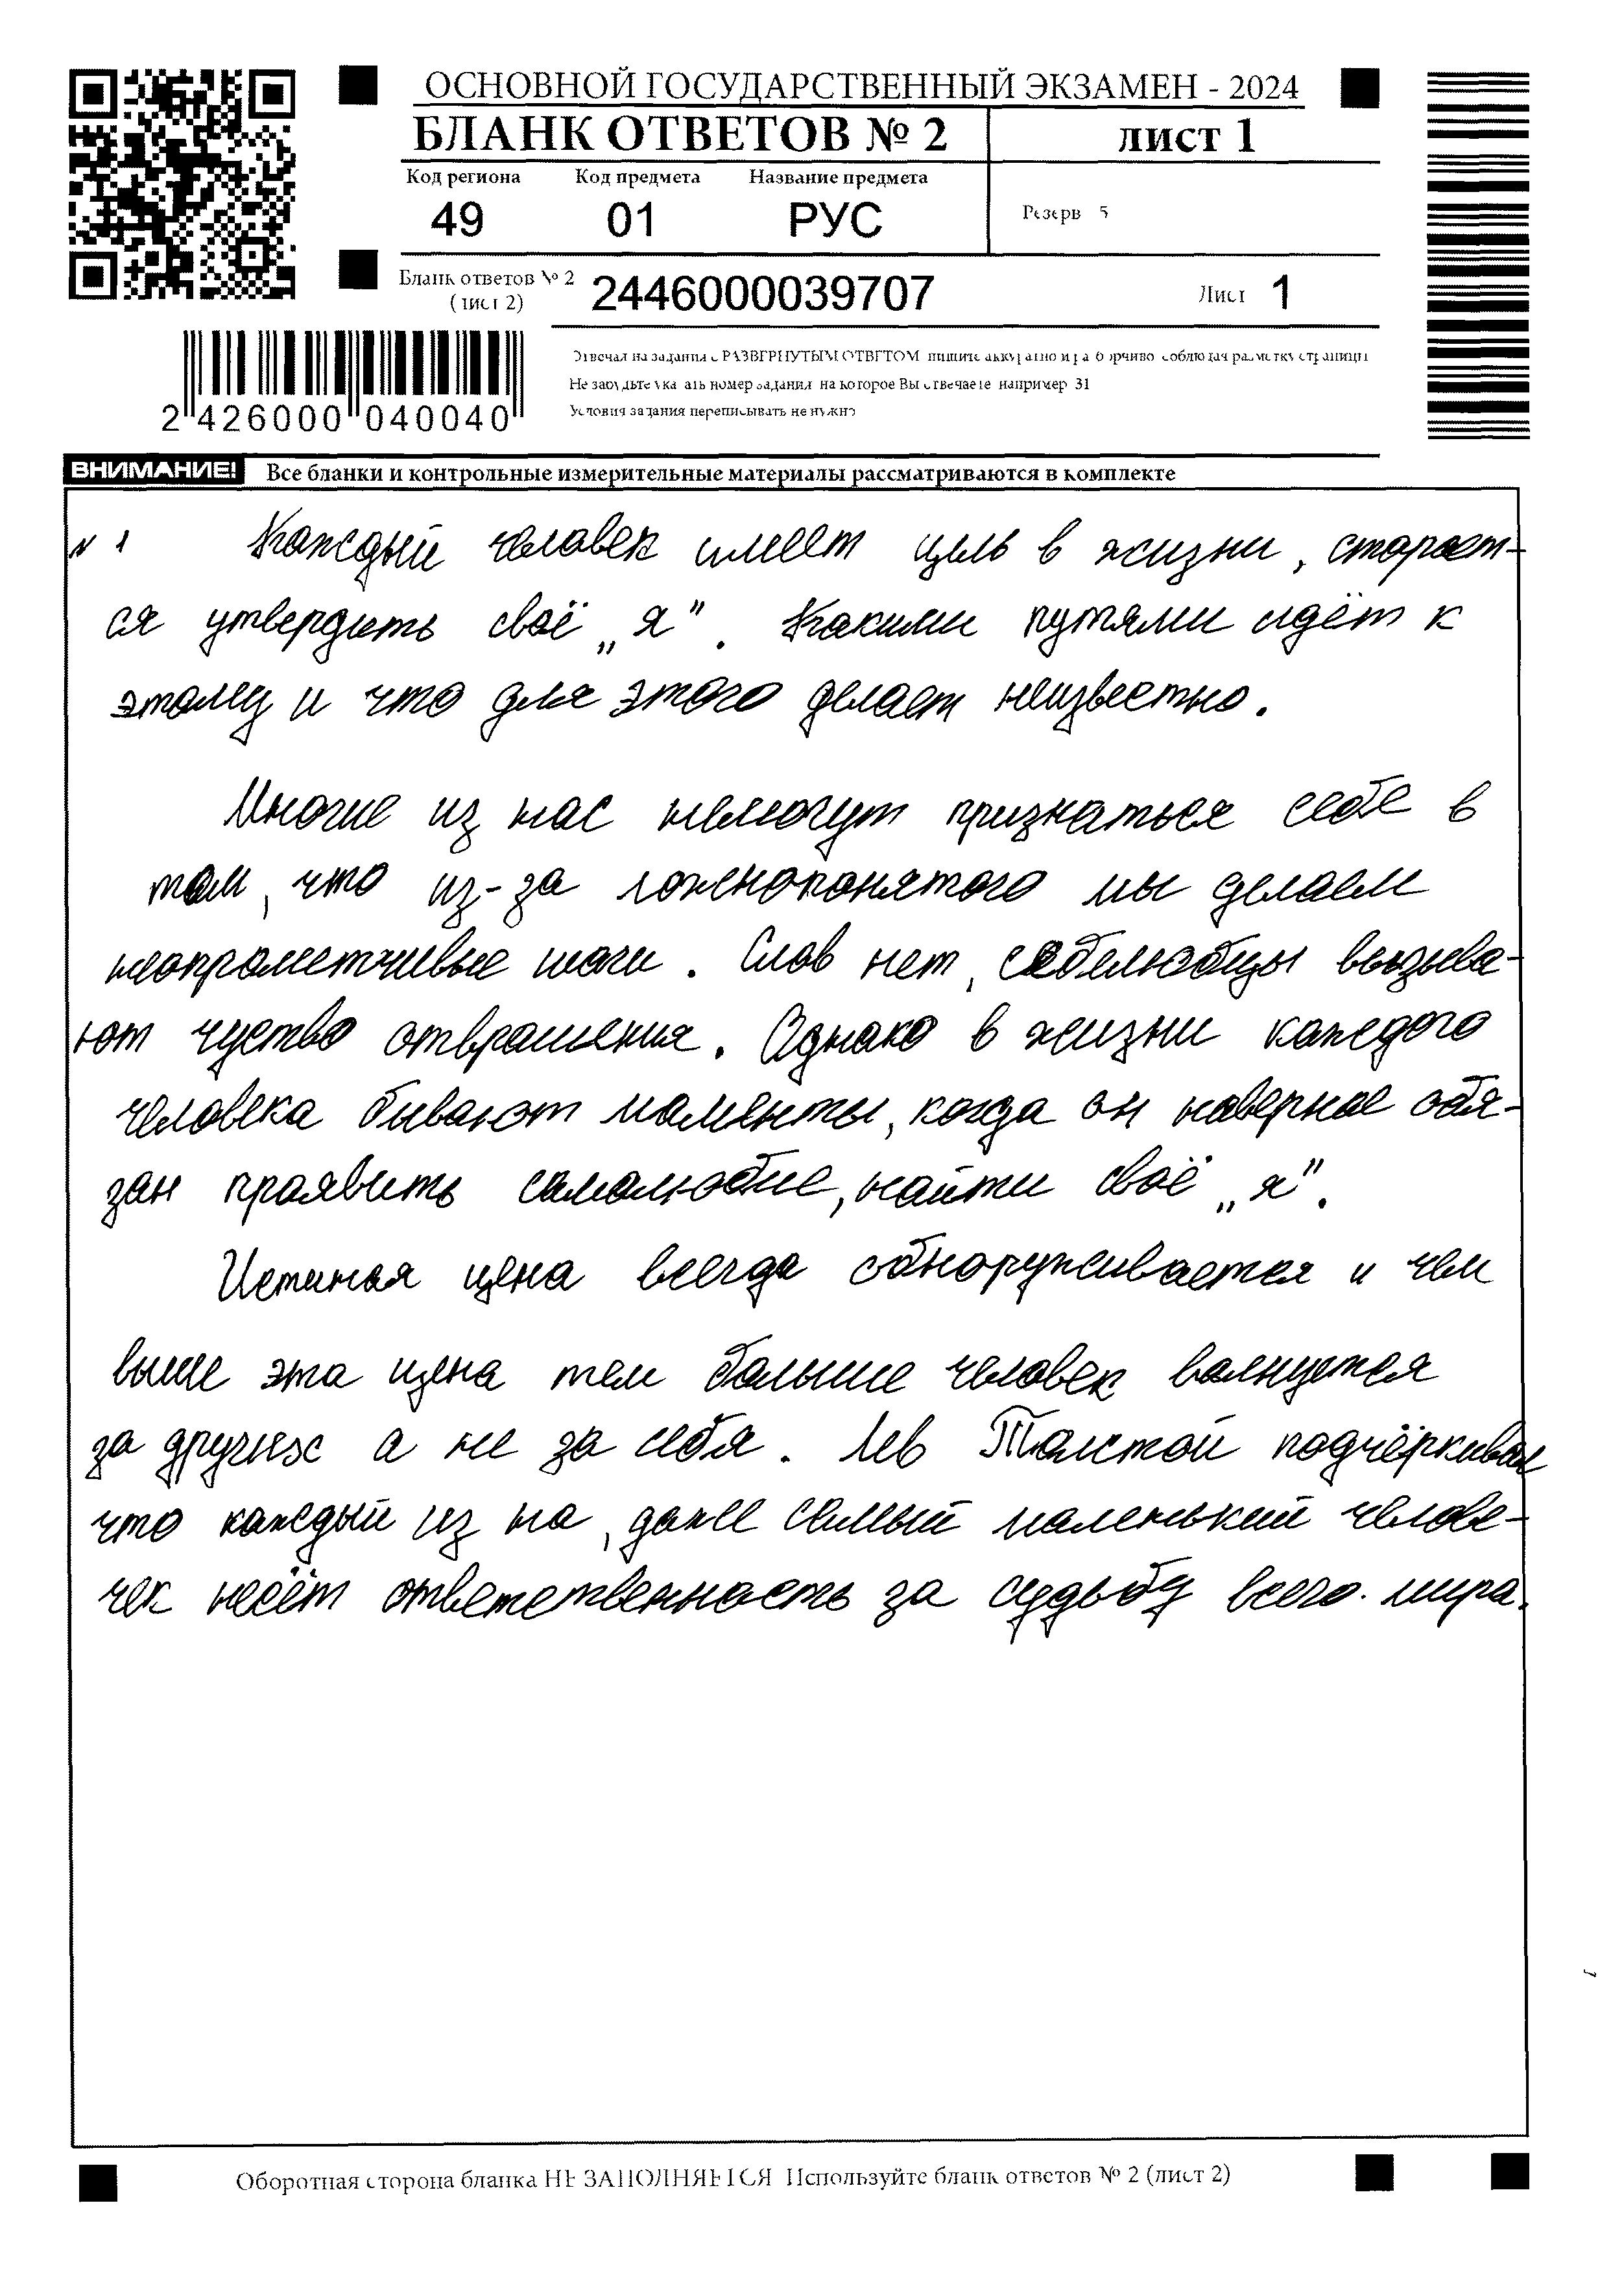 ОСНОВНОЙ ГОСУДАРСТВЕННЫЙ ЭКЗАМЕН - 2024
БЛАНК ОТВЕТОВ № 2
ЛИСТ 1
Код региона Код предмета Название предмета
49 01 РУС
Резерв 5
Бланк ответов № 2
(лист 2)
2446000039707
Лист 1
Отвечая на задания с РАЗВЕРНУТЫМ ОТВЕТОМ пишите аккуратно и разборчиво соблюдая разметку страницы
Не забудьте указать номер задания на которое Вы отвечаете например 31
Условия задания переписывать не нужно
2 426000 040040
ВНИМАНИЕ! Все бланки и контрольные измерительные материалы рассматриваются в комплекте
N 1 Каждый человек имеет цель в жизни, старает-
ся утвердить своё „я". Какими путями идёт к
этому и что для этого делает неизвестно.
Многие из нас немогут признаться себе в
том, что из-за ложнопонятого мы делаем
неопрометчивые шаги. Слов нет, себелюбцы вызыва-
ют чуство отвращения. Однако в жизни каждого
человека бывают моменты, когда он наверное обя-
зан проявить самолюбие, найти своё „я".
Истиная цена всегда обноруживается и чем
выше эта цена тем больше человек волнуется
за других а не за себя. Лев Толстой подчёркивал
что каждый из на, даже самый маленький челове-
чек несёт ответственность за судьбу всего мира.
Оборотная сторона бланка НЕ ЗАПОЛНЯЕТСЯ Используйте бланк ответов № 2 (лист 2)